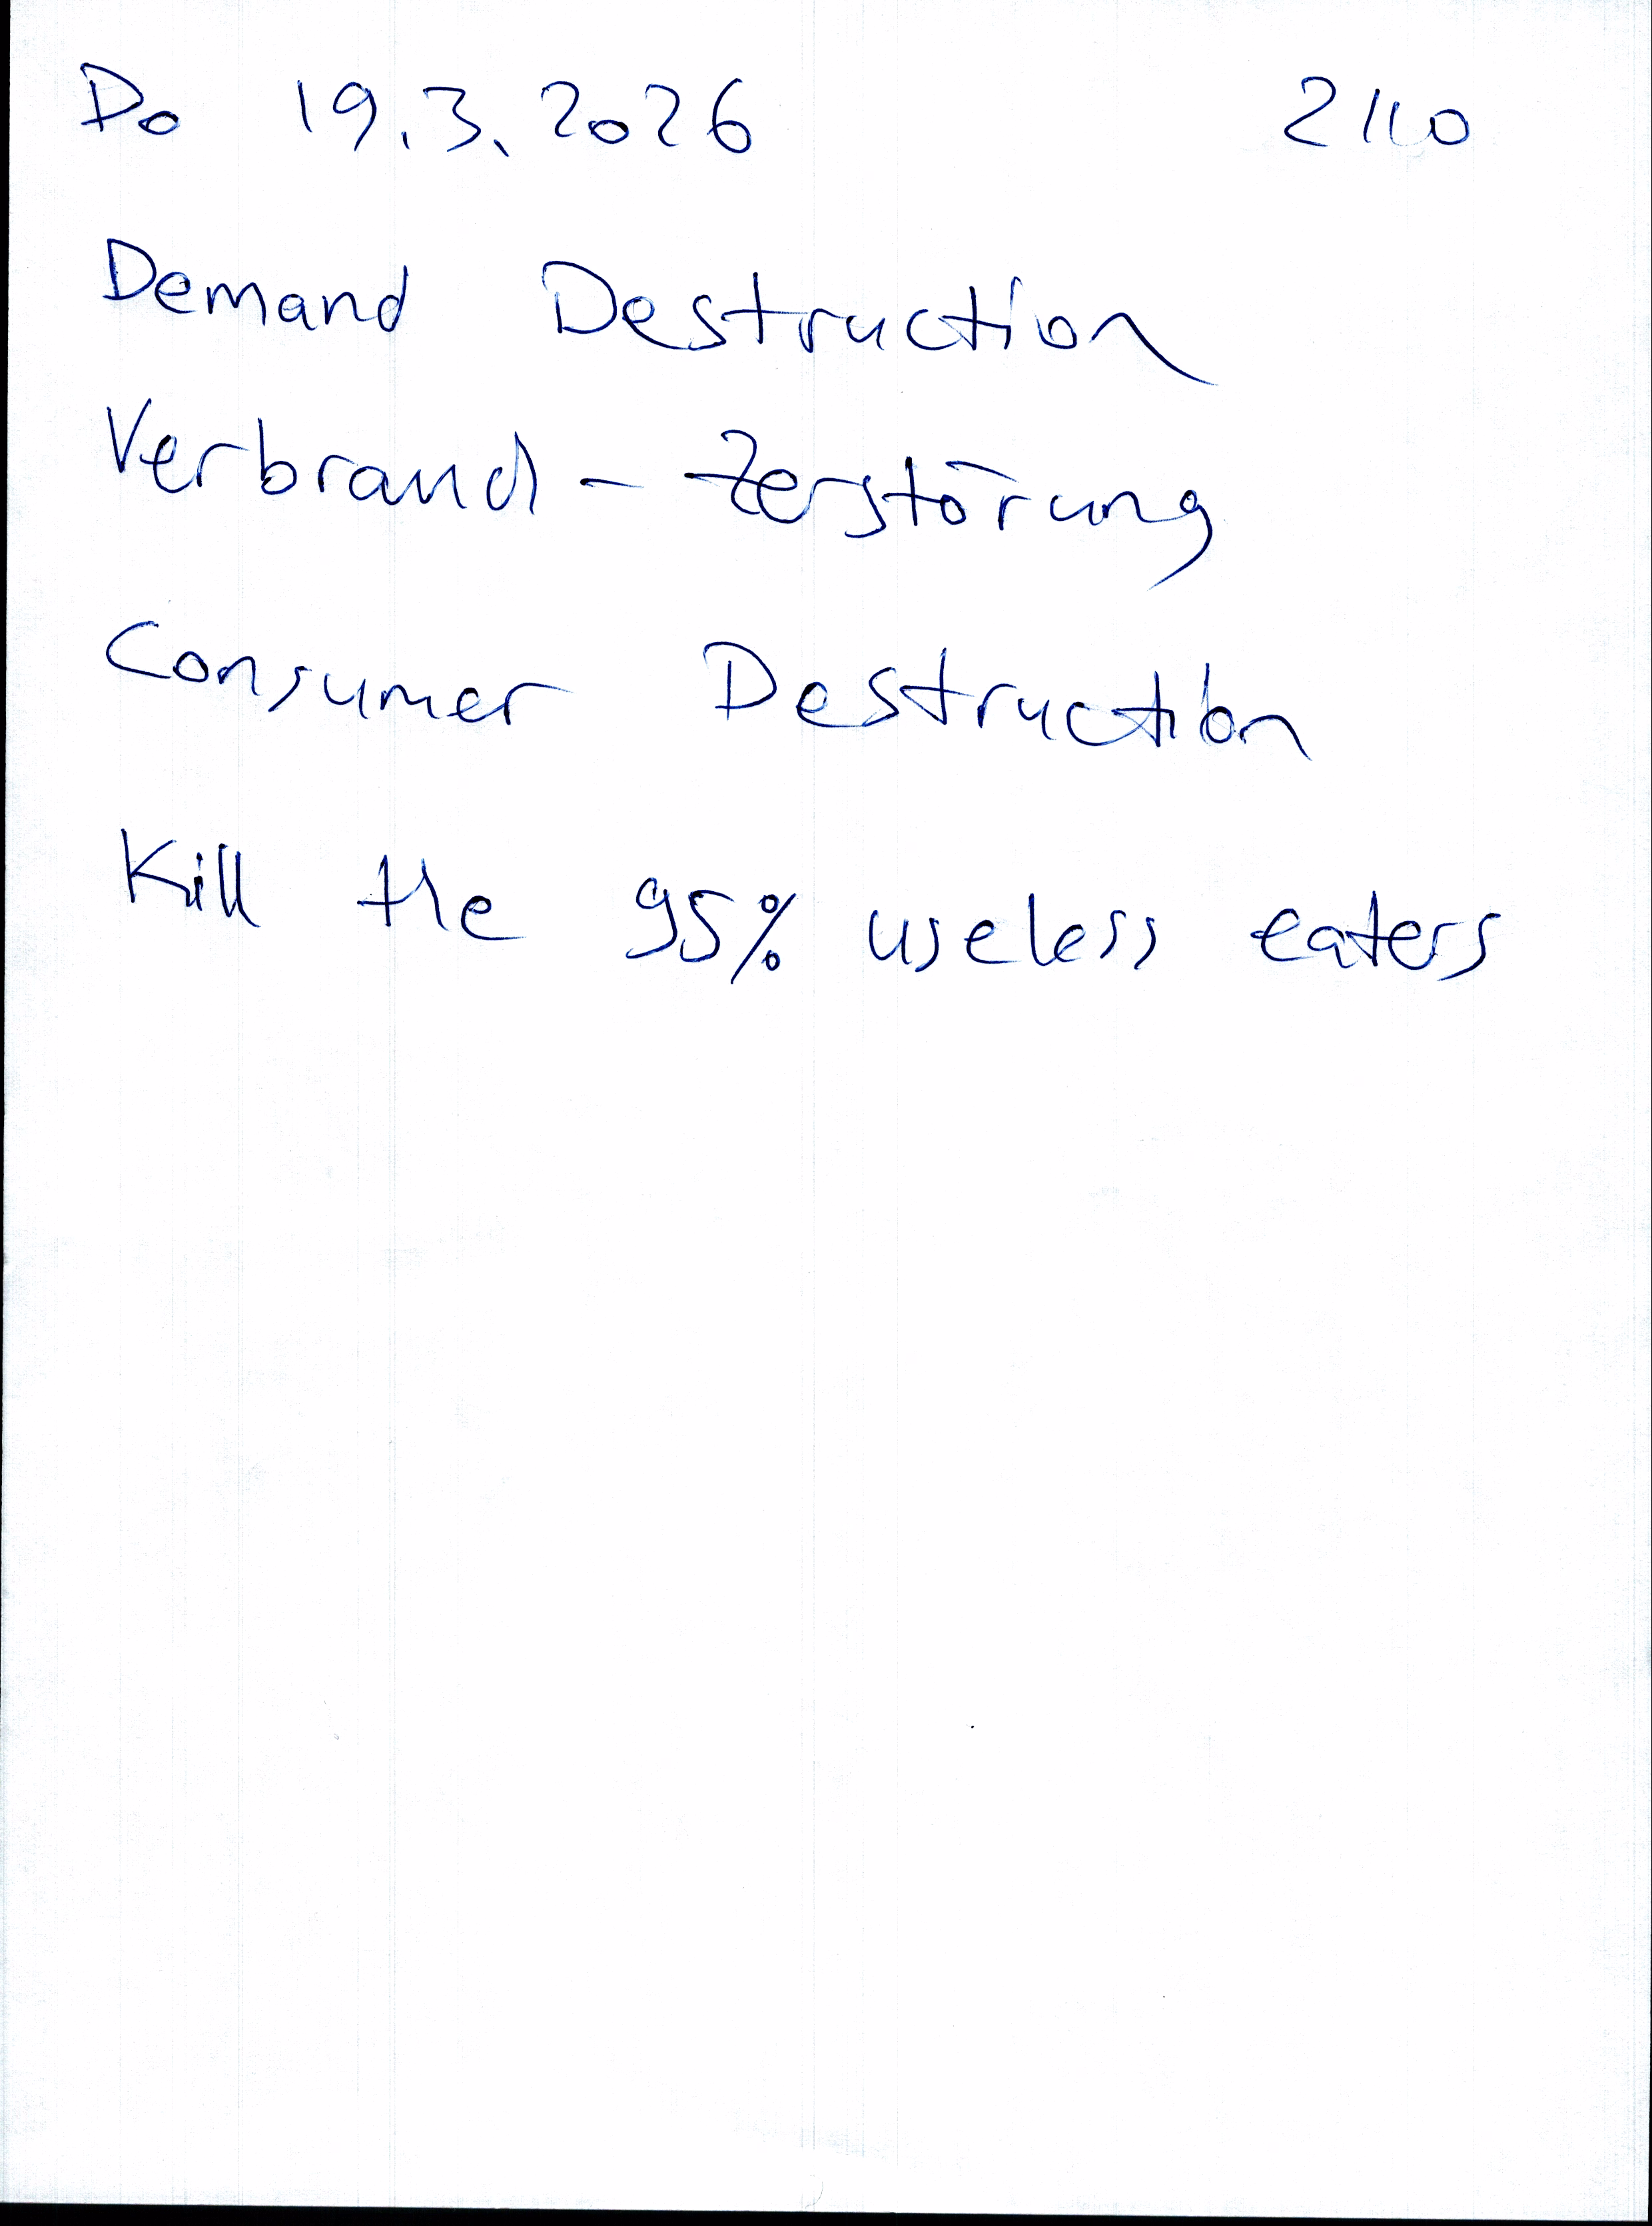 Do 19.3.2026 2110
Demand Destruction
Verbrauch - Zerstörung
Consumer Destruction
Kill the 95% useless eaters